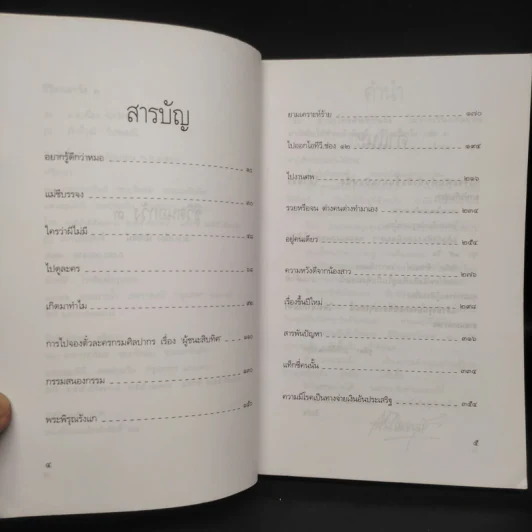 สารบัญ
อยากรู้ดีกว่าหมอ
แม่ชีบรรจง
ใครว่าผีไม่มี
ไปดูละคร
เกิดมาทำไม
การไปจองตั๋วละครกรมศิลปากร เรื่อง 'ผู้ชนะสิบทิศ'
กรรมสนองกรรม
พระพิรุณรังแก
๔
ยามเคราะห์ร้าย ๑๗๐
ไปออกไอทีวี.ช่อง ๑๒ ๑๙๕
ไปงานศพ ๒๑๖
รวยหรือจน ต่างคนต่างทำมาเอง ๒๓๕
อยู่คนเดียว ๒๕๔
ความหวังดีจากน้องสาว ๒๗๖
เรื่องขึ้นปีใหม่ ๒๙๘
สารพันปัญหา ๓๑๖
แท็กซี่คนนั้น ๓๓๕
ความมีโรคเป็นทางจ่ายเงินอันประเสริฐ ๓๕๔
๕